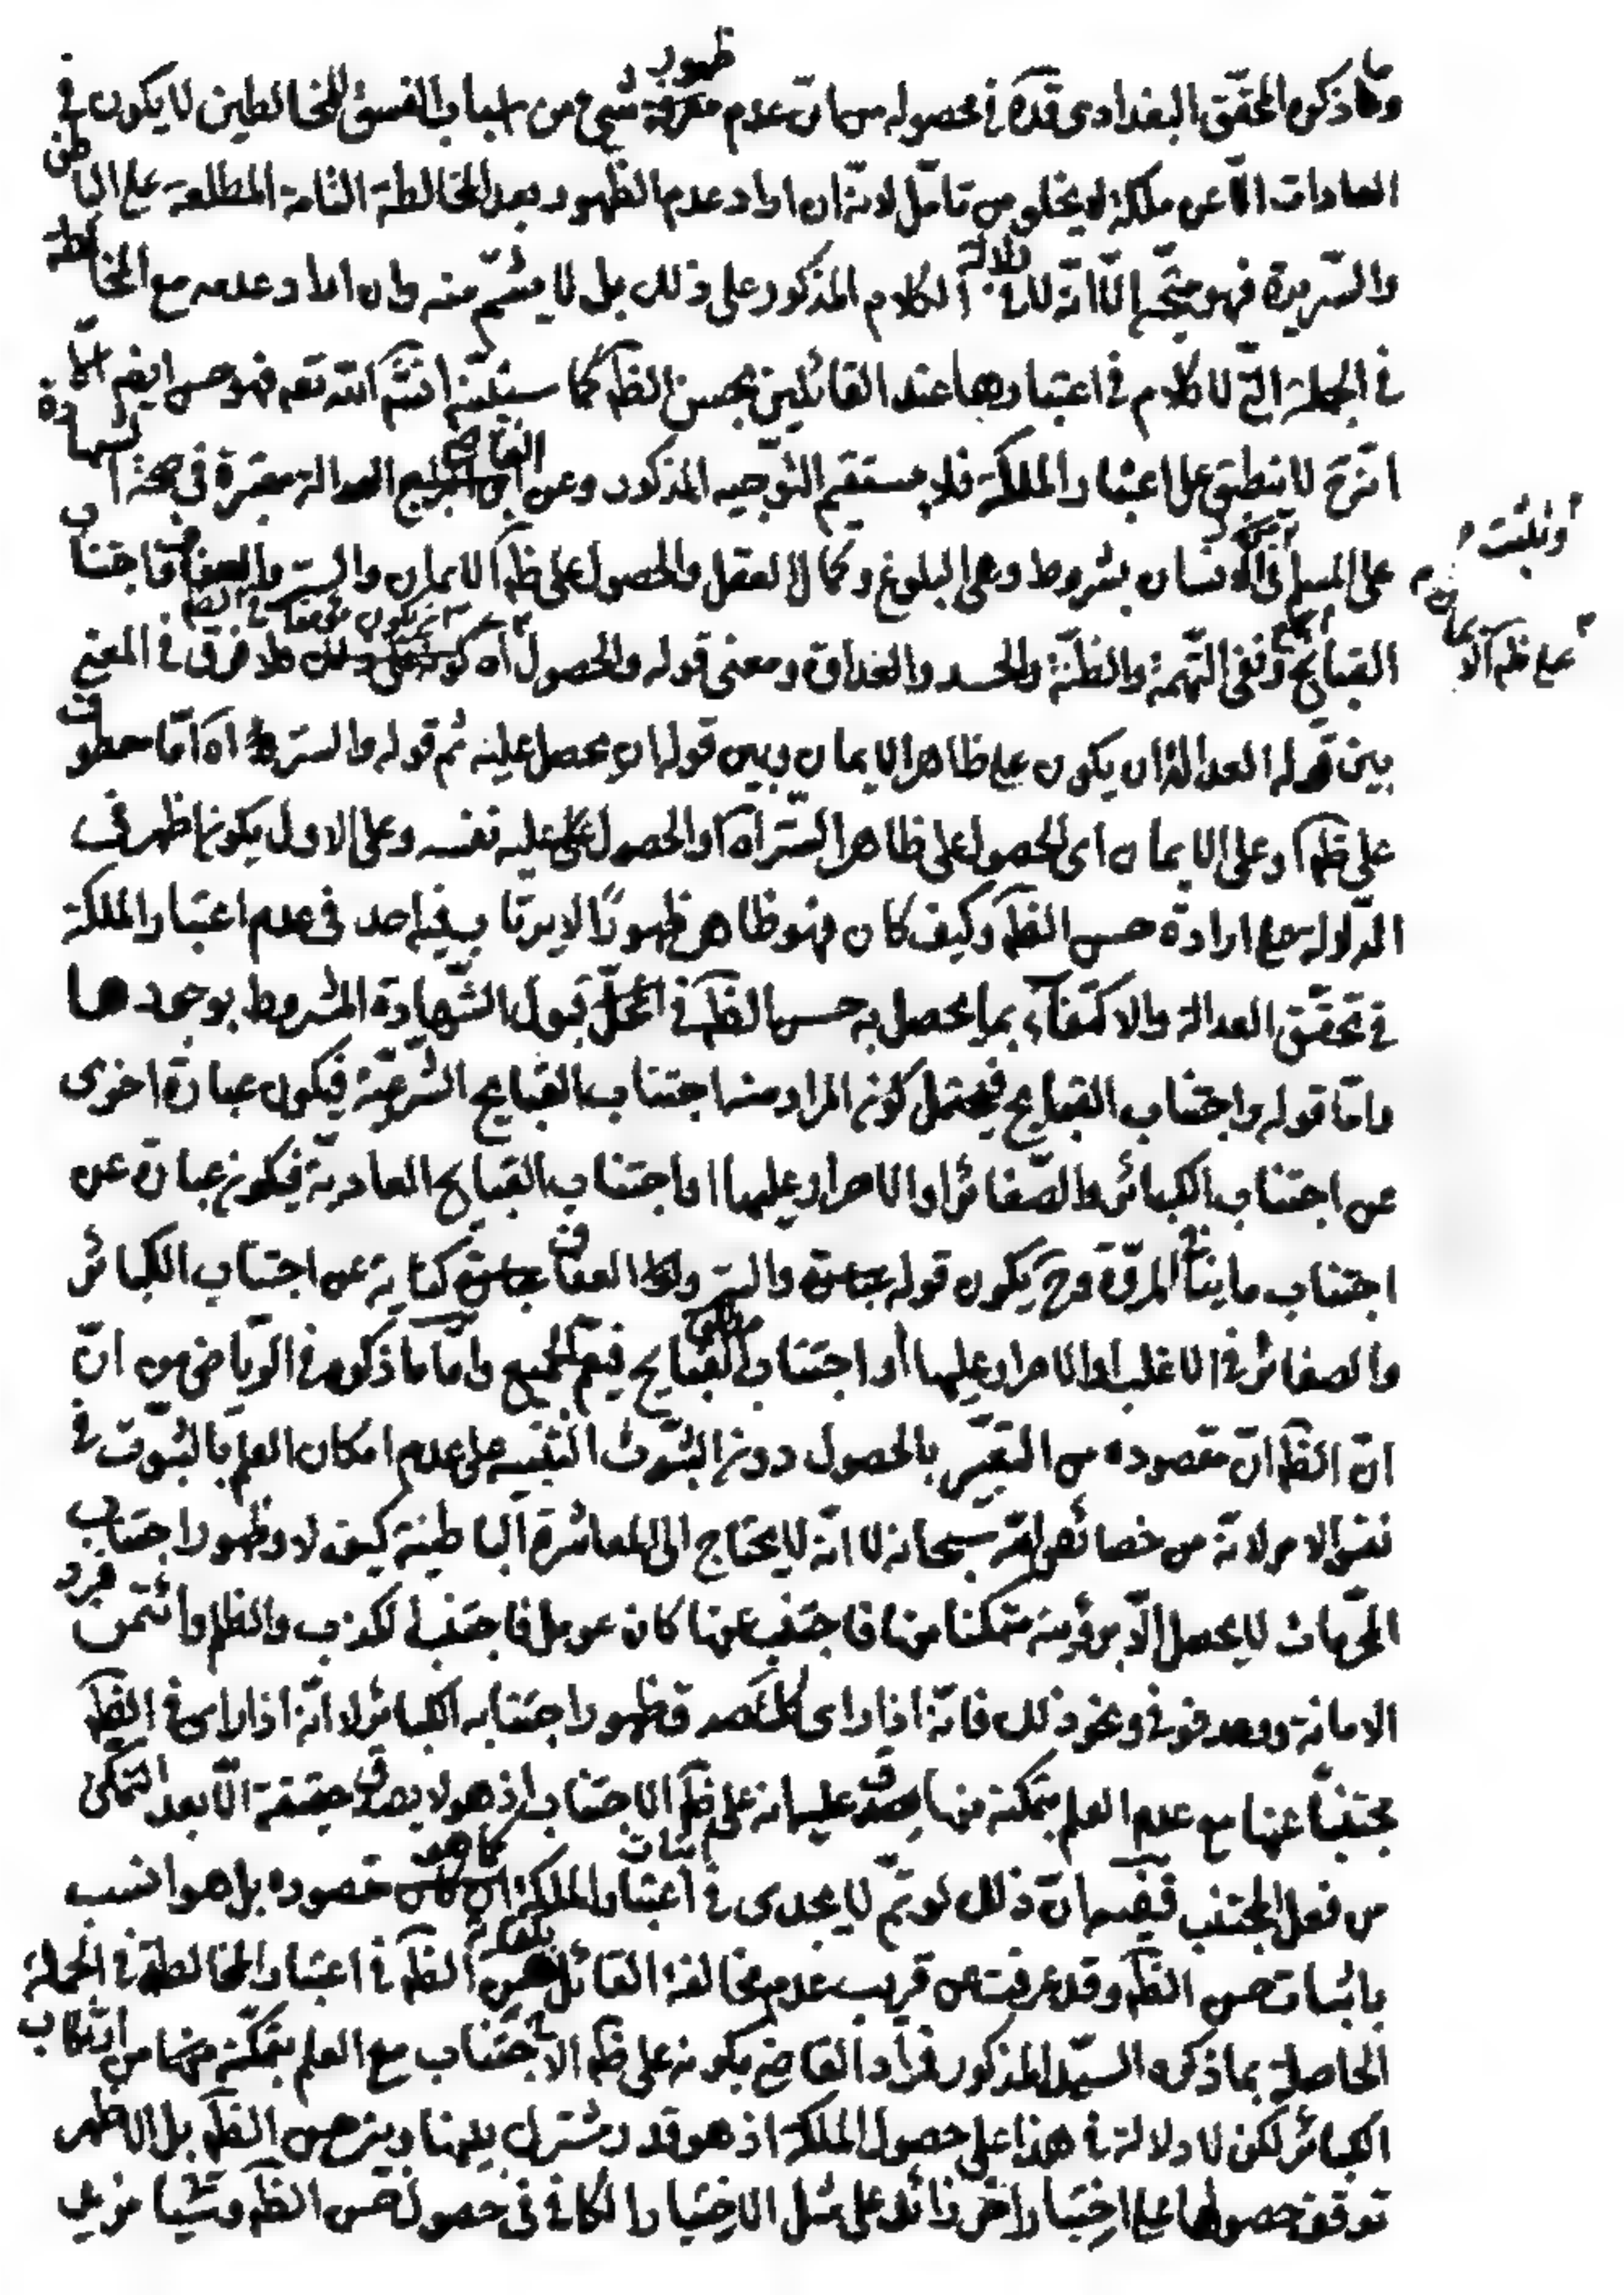 وما ذكره المحقق البغدادى قده في محصوله من ان عدم ظهور شيء من اسباب الفسق للمخالطين لا يكون في
العادات الا عن ملكة لا يخلو من تامل لانه ان اراد عدم الظهور بعد المخالطة التامة المطلعة على الباطن
والسريرة فهو متجه الا انه لا دلالة في الكلام المذكور على ذلك بل لا يشم منه وان اراد عدمه مع المخالطة
في الجملة التي لا كلام في اعتبارها عند القائلين بحسن الظه كما سيتلى انشاء الله تعه فهو حسن ايضا الا
انه ح لا ينطبق على اعتبار الملكة فلا يستقيم التوجيه المذكور وعن القاضي العدالة معتبرة في صحة الشهادة
على المسلم وتثبت في الانسان بشروط وهى البلوغ وكمال العقل والحصول على ظه الايمان والستر والعفاف واجتناب
القبايح ونفى التهمة والظنة والحسد والعداوة ومعنى قوله والحصول اه فلا فرق في المعنى
بين قوله العدالة ان يكون على ظاهر الايمان وبين قوله ان يحصل عليه ثم قوله والستر اه اما معطوف
على ظه او على الايمان اى الحصول على ظاهر الستر اه او الحصول على نفسه وعلى الاول يكون اظهر في
الدلالة على ارادة حسن الظه وكيف كان فهو ظاهر ظهورًا لا يرتاب فيه احد في عدم اعتبار الملكة
في تحقق العدالة والاكتفاء بما يحصل به حسن الظه في محل قبول الشهادة المشروط بوجودها
واما قوله واجتناب القبايح فيحتمل كون المراد منه اجتناب القبايح الشرعية فيكون عبارة اخرى
عن اجتناب الكبائر والصغائر او الاصرار عليها او اجتناب القبايح العادية فيكون عبارة عن
اجتناب ما ينافى المروة وح يكون قوله والستر والعفاف كناية عن اجتناب الكبائر
والصغائر في الاغلب او الاصرار عليها او اجتناب مطلق القبايح فيعم الجميع واما ما ذكره في الرياض من ان
ان الظه ان مقصوده من التعبير بالحصول دون الثبوت التنبيه على عدم امكان العلم بالثبوت في
نفس الامر لانه من خصائص الله سبحانه لا انه لا يحتاج الى المعاشرة الباطنية كيف لا وظهور اجتناب
المحرمات لا يحصل الا برؤيته متمكنا منها فاجتنب عنها كان عومل فاجتنب الكذب والظلم وائتمن فرد
الامانة ووعد فوفى ونحو ذلك فانه اذا راى كك صدق ظهور اجتنابه الكبائر لا انه اذا راى في الظه
مجتنبًا عنها مع عدم العلم بتمكنه منها صدق عليه انه على ظه الاجتناب اذ هو لا يصدق حقيقة الا بعد التمكن
من فعل المجتنب ففيه ان ذلك لو تم لا يجدى في اثبات اعتبار الملكة كما هو مقصوده بل هو انسب
باثبات حسن الظه وقد عرفت من قريب عدم مخالفة القائل بكفاية حسن الظه في اعتبار المخالطة في الجملة
الحاصلة بما ذكره السيد المذكور فمراد القاضي بكونه على ظه الاجتناب مع العلم بتمكنه من ارتكاب
الكبائر لكن لا دلالة في هذا على حصول الملكة اذ هو قدر مشترك بينها وبين حسن الظه بل الاظهر
توقف حصولها على اختبار اخر زائد على مثل الاختبار الكافى في حصول حسن الظه